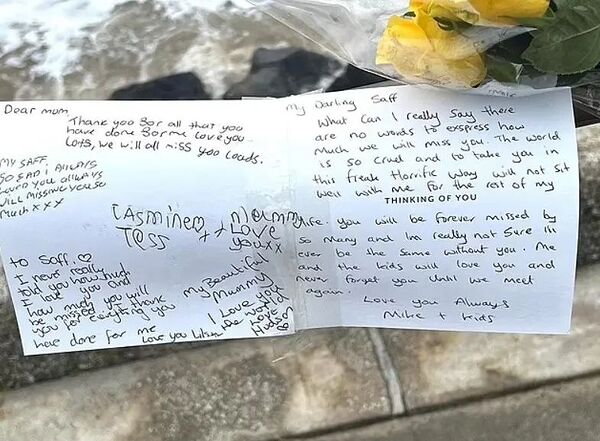 Dear mum
Thank you for all that you
have done for me Love you
Lots, we will all miss you Loads.
MY SAFF.
SO SAD I Always
Loved you always
Will Missing you so
Much xxx
Jasmine
Tess xx
Mummy
Love
you xx
to Saff.
I never really
told you how much
I love you and
how much you will
be missed I thank
you for everything you
have done for me
Love you
my Beautiful
Mummy
I Love you
Love
Hudson
My Darling Saff
What Can I really Say there
are no words to express how
Much we will miss you. The world
is so cruel and to take you in
this freak Horrific way will not sit
well with me for the rest of my
THINKING OF YOU
life. you will be forever missed by
so many and Im really not sure ill
ever be the same without you. Me
and the kids will love you and
never forget you Until we meet
again.
Love you Always
Mike + kids